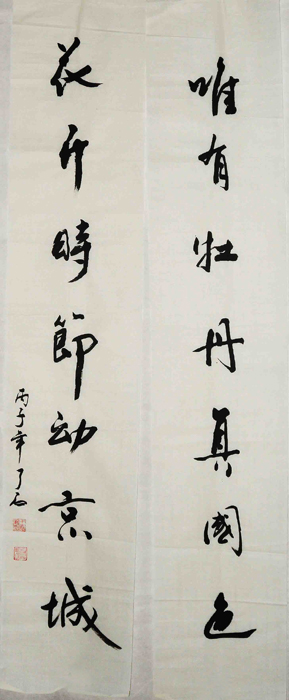 唯有牡丹真國色
花开時節动京城
丙子年了石